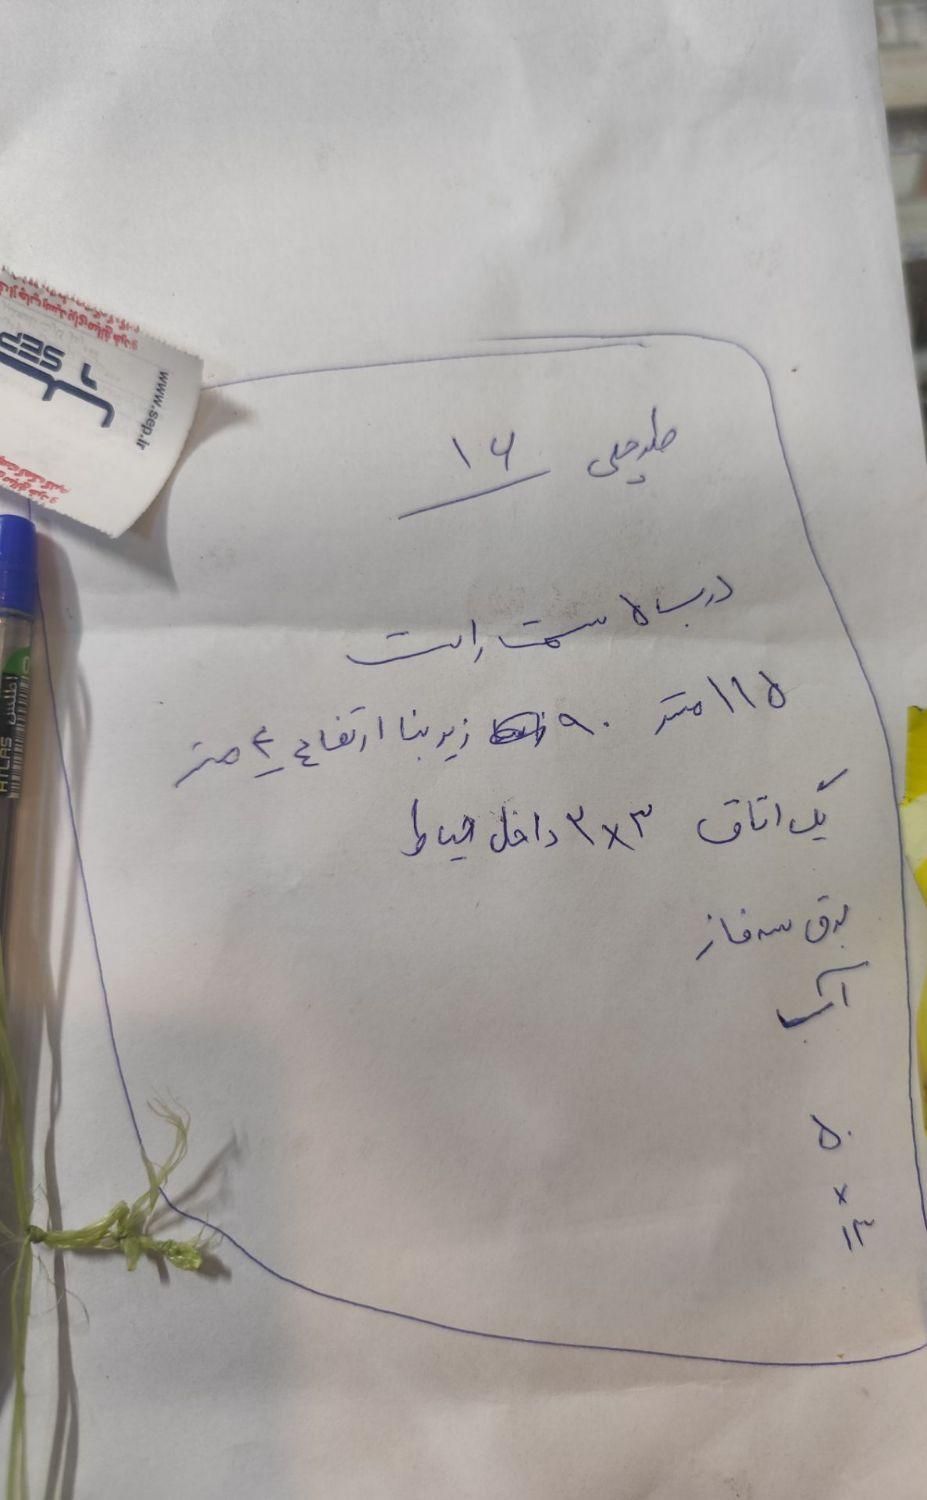 ۱۶
درب ۵ سمت راست
۱۱۵ متر ۹۰ زیر بنا ارتفاع ۴ متر
یک اتاق ۳×۳ داخل حیاط
برق سه فاز
آب
۵۰
×
۱۳
www.sep.ir
SEP
ATLAS
اطلس